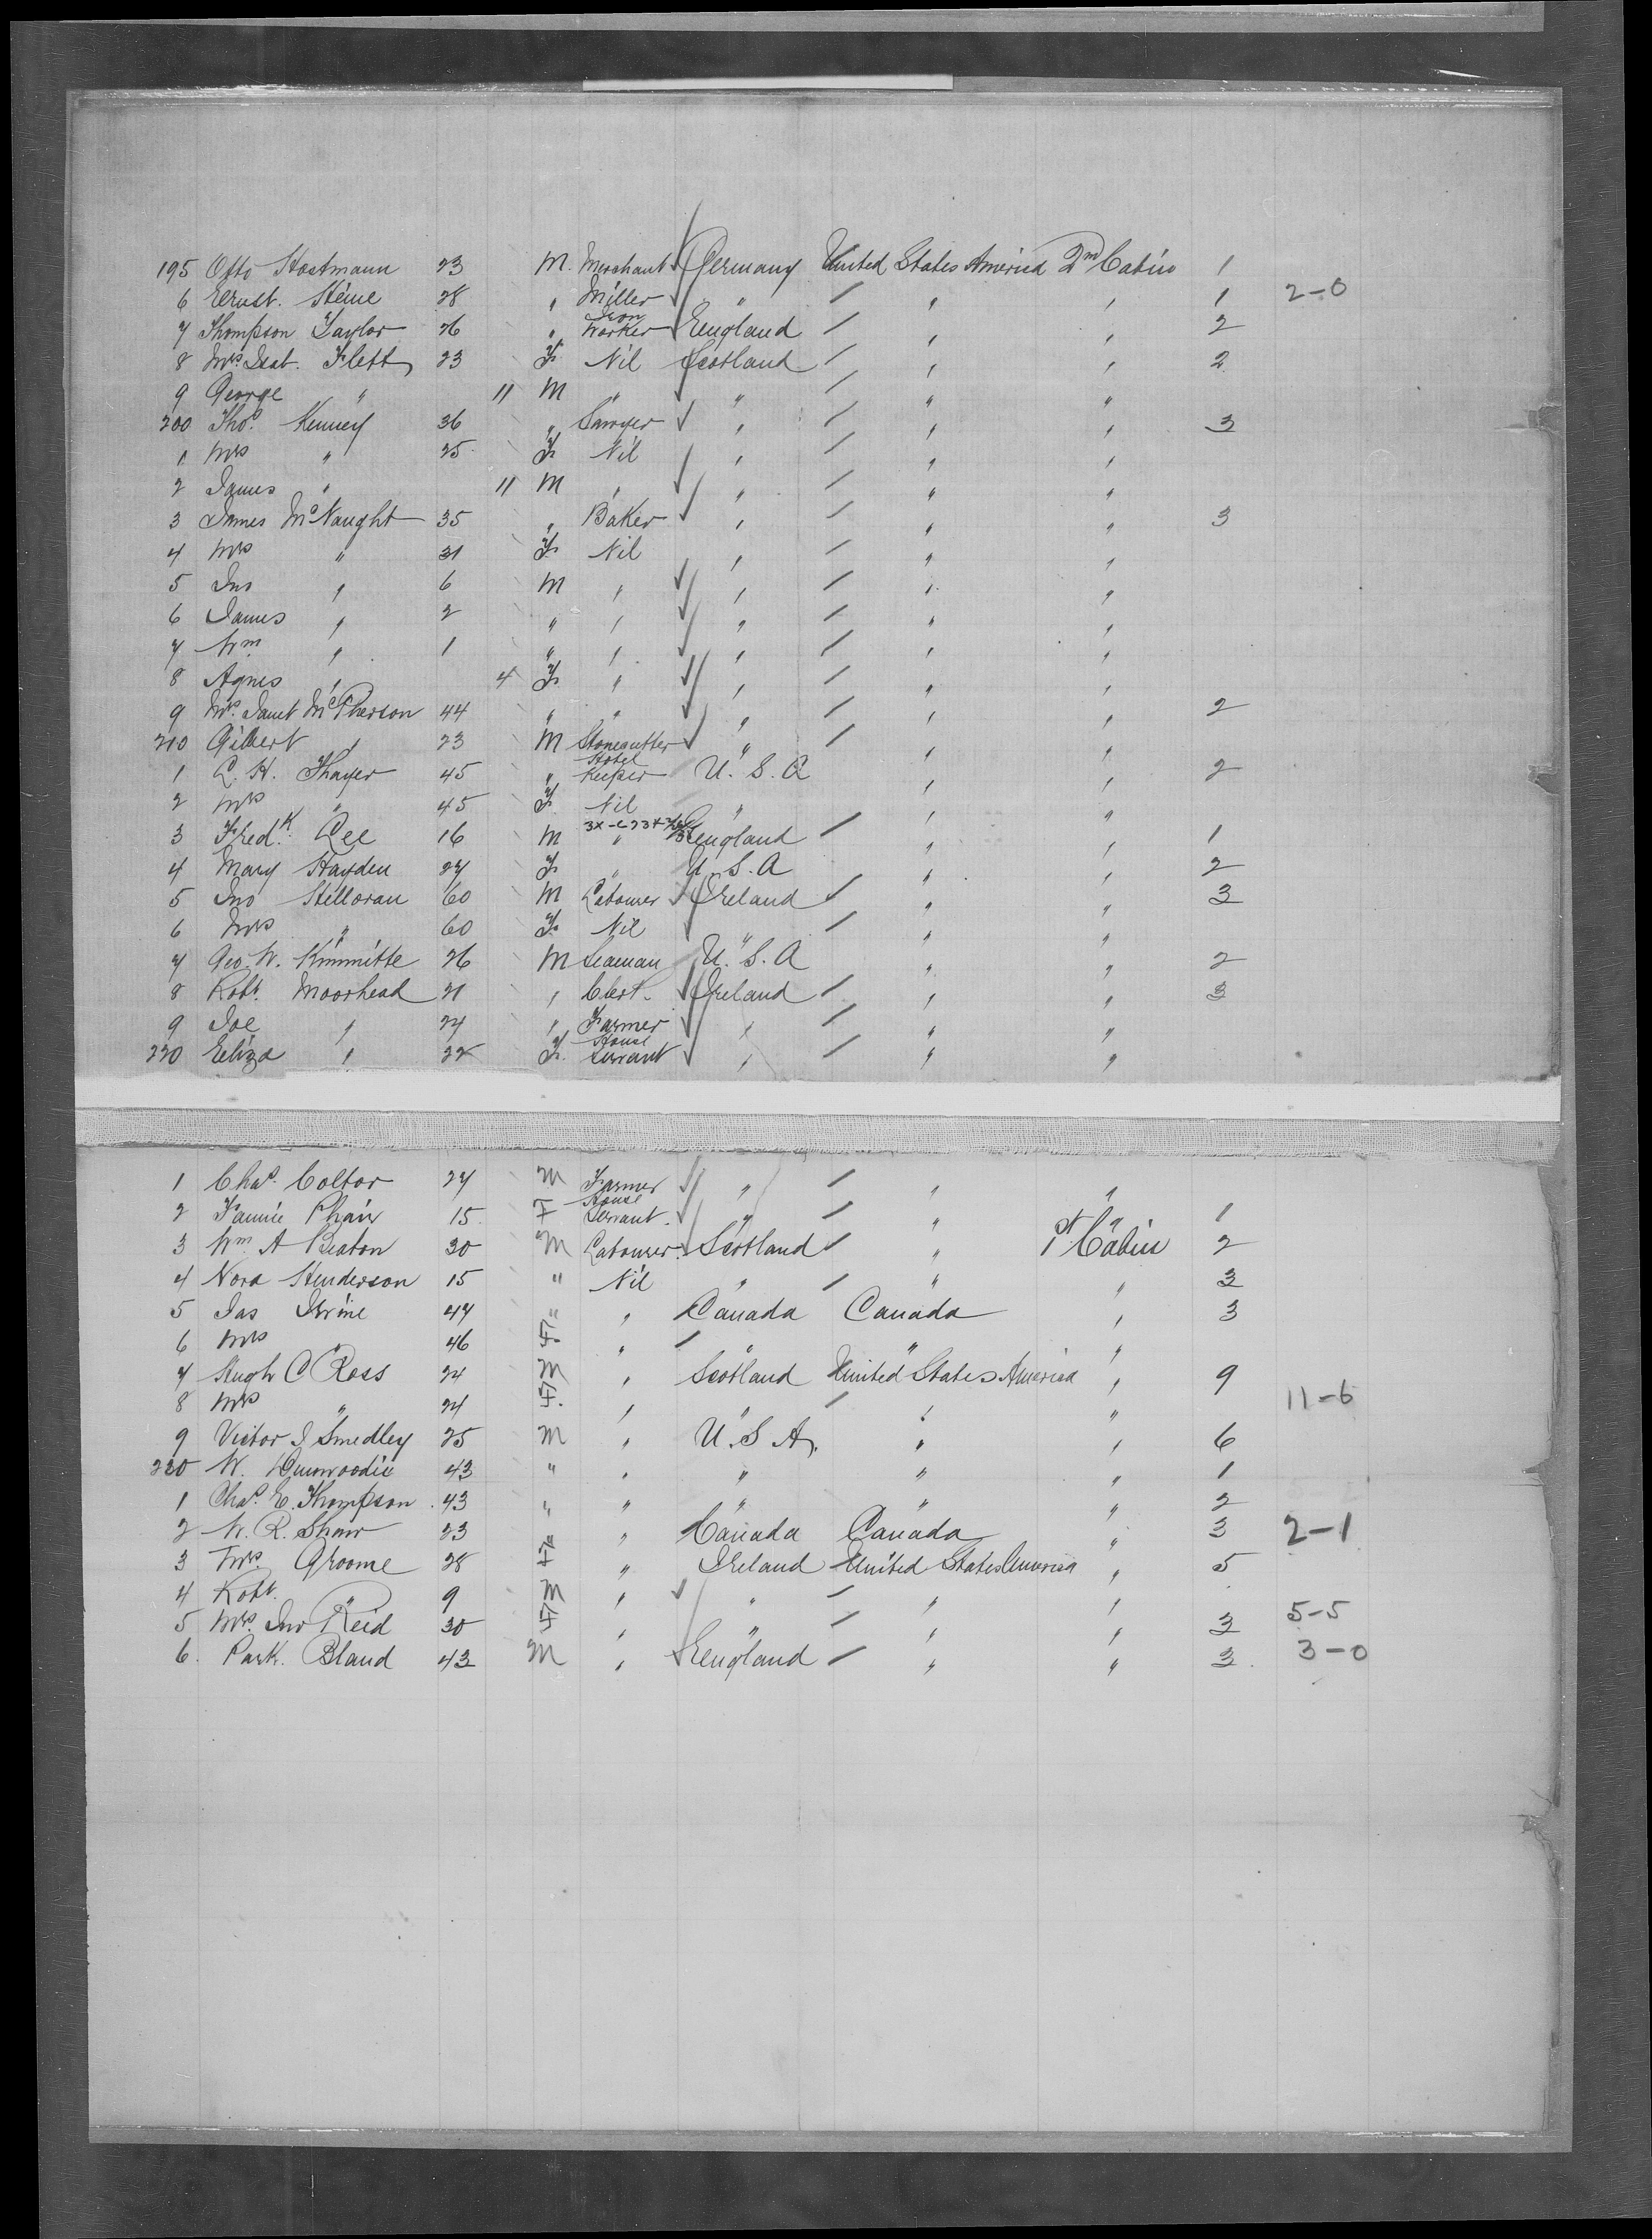 195 Otto Hostmann 23 M. Merchant Germany United States America 2nd Cabin 1
6 Ernst. Steine 28 " Miller " / " " 1 2-0
7 Thompson Taylor 26 " Iron Worker England / " " 2
8 Mrs Isab. Flett 23 F. Nil Scotland / " " 2
9 George " 11 M " " / " "
200 Thos. Kenney 36 " Sawyer " / " " 3
1 Mrs " 25 F. Nil " / " "
2 James " 11 M " " / " "
3 James McNaught 35 " Baker " / " " 3
4 Mrs " 31 F. Nil " / " "
5 Jno " 6 M " " / " "
6 James " 2 " " " / " "
7 Wm " 1 " " " / " "
8 Agnes " 4 F. " " / " "
9 Mrs. Janet McPherson 44 " " " / " " 2
210 Gilbert " 23 M Stonecutter " / " "
1 L. H. Thayer 45 " Hotel Keeper U. S. A " " 2
2 Mrs " 45 F. Nil " " "
3 Fredk. Lee 16 M " England / " " 1
4 Mary Hayden 27 F. " U. S. A " " 2
5 Jno Halloran 60 M Labourer Ireland / " " 3
6 Mrs " 60 F. Nil " / " "
7 Geo. W. Kimmitte 26 M Seaman U. S. A " " 2
8 Robt. Moorhead 21 " Clerk. Ireland / " " 3
9 Joe " 24 " Farmer " / " "
220 Eliza " 22 F. House Servant " / " "
1 Chas. Coltor 27 M Farmer " / " "
2 Fannie Phair 15 F House Servant. " / " " 1
3 Wm A Beaton 30 M Labourer. Scotland / " 1st Cabin 2
4 Nora Henderson 15 " Nil " / " " 3
5 Jas Irvine 47 " " Canada Canada " 3
6 Mrs " 46 F. " / " " "
7 Hugh C Ross 24 M " Scotland United States America " 9
8 Mrs " 24 F. " " / " " 11-6
9 Victor J Smedley 25 M " U. S. A. " " 6
230 W. Dunwoodie 43 " " " " " 1
1 Chas. E. Thompson 43 " " " " " 2
2 W. R. Shaw 23 " " Canada Canada " 3 2-1
3 Mrs. Groome 28 F " Ireland United States America " 5
4 Robt. " 9 M " " / " "
5 Mrs. Jno Reid 30 F " " / " " 3 5-5
6. Park. Bland 43 M " England / " " 3. 3-0